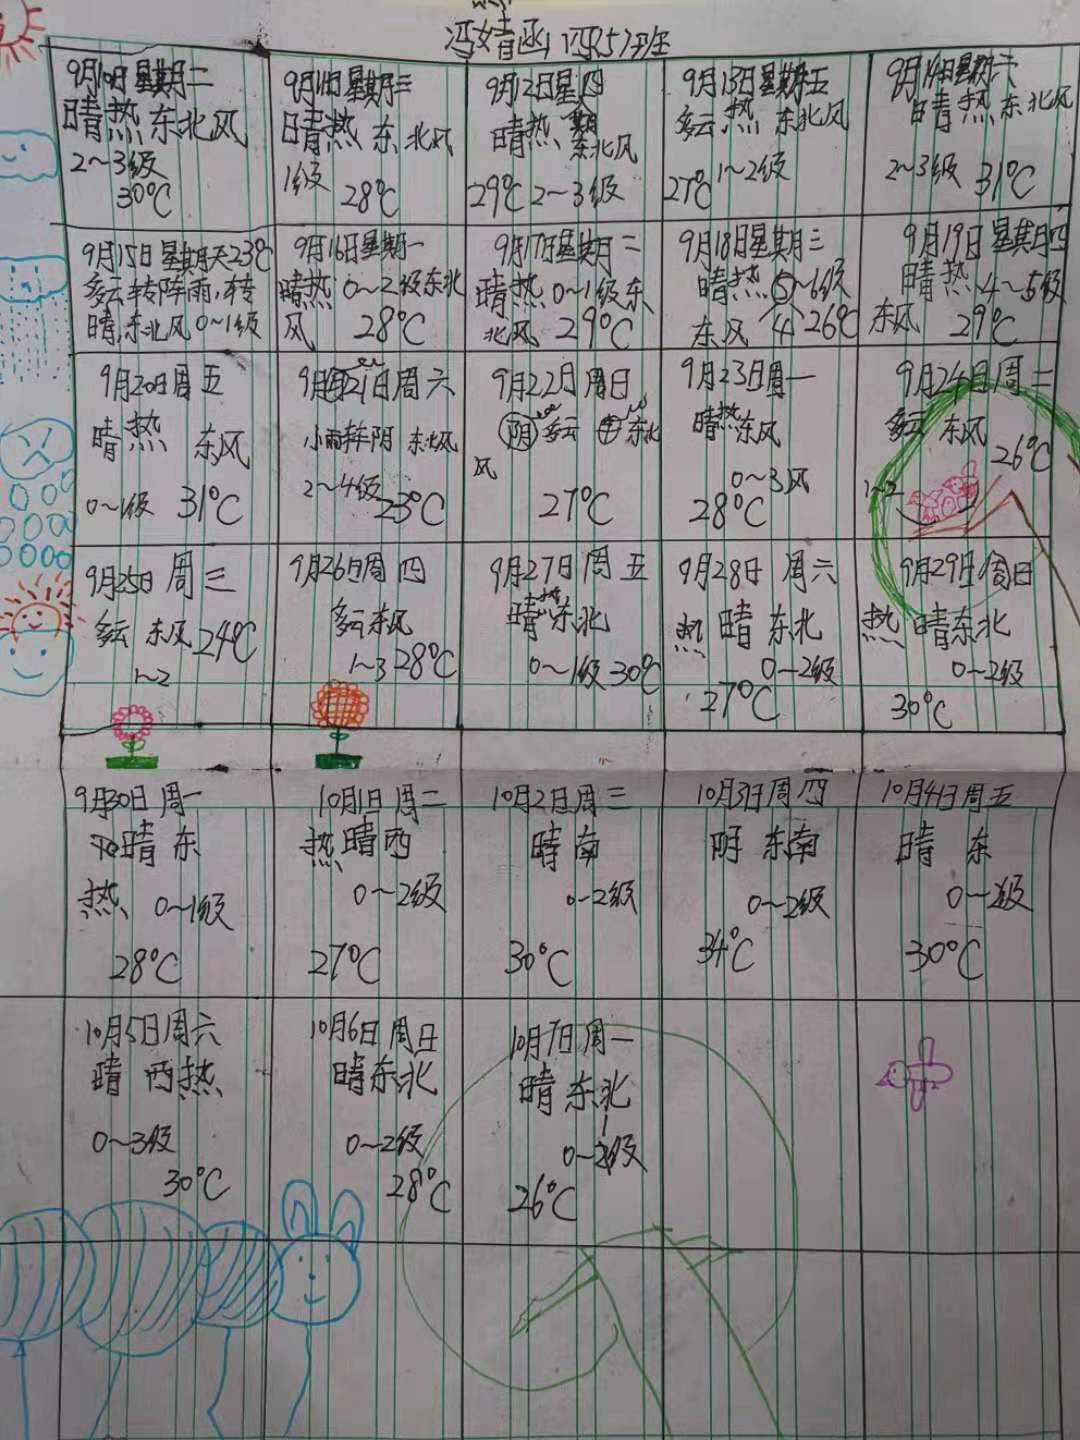 冯婧函 四(5)班
9月10日星期二
晴热东北风
2~3级
30℃
9月11日星期三
晴热 东北风
1级 28℃
9月12日星期四
晴热
东北风
29℃ 2~3级
9月13日星期五
多云 热 东北风
27℃ 1~2级
9月14日星期六
晴热东北风
2~3级 31℃
9月15日星期天23℃
多云转阵雨,转
晴,东北风 0~1级
9月16日星期一
晴热 0~2级东北
风 28℃
9月17日星期二
晴热 0~1级东
北风 29℃
9月18日星期三
晴热 5~6级
东风 4 26℃
9月19日星期四
晴热 4~5级
东风 29℃
9月20日周五
晴热 东风
0~1级 31℃
9月21日周六
小雨转阴 东北风
2~4级
23℃
9月22日周日
阴 多云 东北
风
27℃
9月23日周一
晴热东风
0~3风
28℃
9月24日周二
多云 东风
26℃
1~2
9月25日周三
多云 东风 24℃
1~2
9月26日周四
多云东风
1~3 28℃
9月27日周五
晴热东北
0~1级 30℃
9月28日 周六
热 晴 东北
0~2级
27℃
9月29日周日
热 晴东北
0~2级
30℃
9月30日周一
晴东
热 0~1级
28℃
10月1日周二
热晴西
0~2级
27℃
10月2日周三
晴南
0~2级
30℃
10月3日周四
阴 东南
0~2级
34℃
10月4日周五
晴 东
0~2级
30℃
10月5日周六
晴 西热
0~3级
30℃
10月6日周日
晴东北
0~2级
28℃
10月7日周一
晴东北
0~2级
26℃